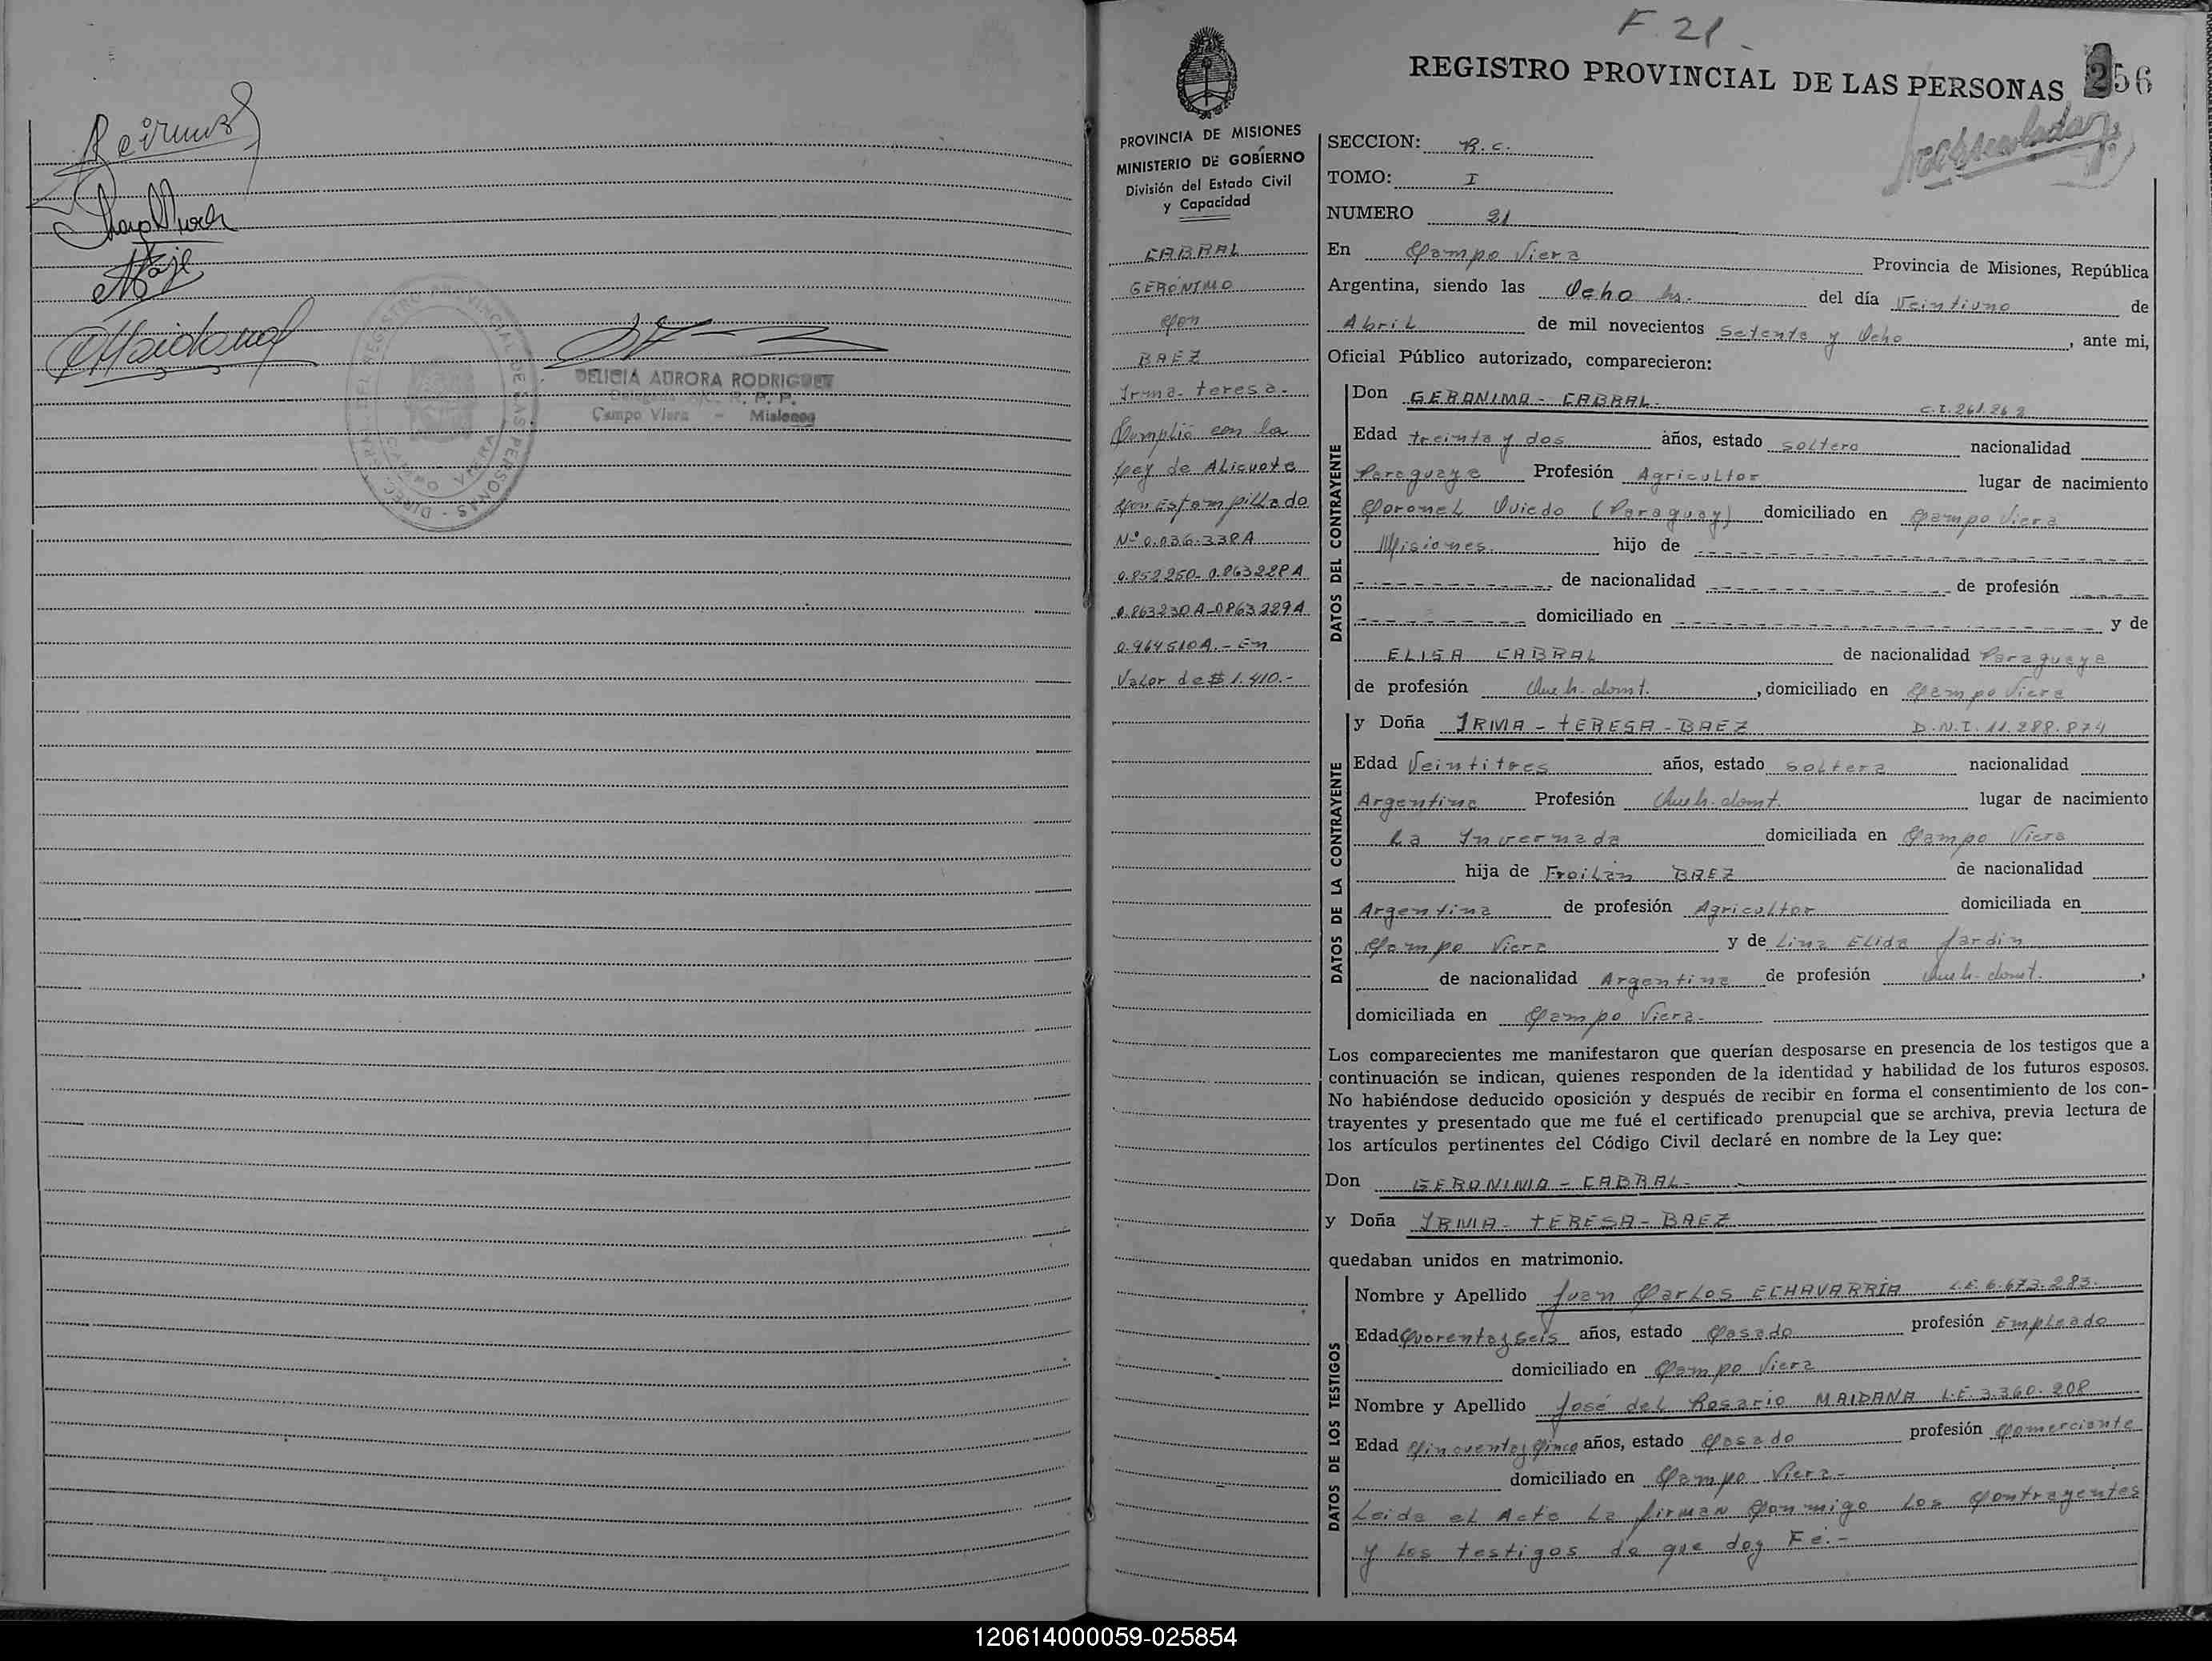 DELICIA AURORA RODRIGUEZ
R. P. P.
Campo Viera - Misiones
F. 21.
REGISTRO PROVINCIAL DE LAS PERSONAS 256
PROVINCIA DE MISIONES
MINISTERIO DE GOBIERNO
División del Estado Civil
y Capacidad
CABRAL
GERÓNIMO
Con
BAEZ
Irma-teresa-
Cumplió con la
Ley de Alicuota
Con Estampillado
Nº 0.036.338A
0.852250-0.863228A
0.863230A-0863229A
0.964510A.-En
Valor de $ 1.410.-
SECCION: R.C.
TOMO: I
NUMERO 21
En Campo Viera Provincia de Misiones, República
Argentina, siendo las Ocho hs. del día Veintiuno de
Abril de mil novecientos Setenta y Ocho, ante mi,
Oficial Público autorizado, comparecieron:
DATOS DEL CONTRAYENTE
Don GERONIMO - CABRAL- C.I. 261.262
Edad treinta y dos años, estado soltero nacionalidad
Paraguaya Profesión Agricultor lugar de nacimiento
Coronel Oviedo (Paraguay) domiciliado en Campo Viera
Misiones. hijo de
de nacionalidad de profesión
domiciliado en y de
ELISA CABRAL de nacionalidad Paraguaya
de profesión Queh. domt., domiciliado en Campo Viera
DATOS DE LA CONTRAYENTE
y Doña IRMA - tERESA - BAEZ D.N.I. 11.288.874
Edad Veintitres años, estado soltera nacionalidad
Argentina Profesión Queh. domt. lugar de nacimiento
La Invernada domiciliada en Campo Viera
hija de Froilán BAEZ de nacionalidad
Argentina de profesión Agricultor domiciliada en
Campo Viera y de Lina Elida Jardin
de nacionalidad Argentina de profesión Queh. domt.,
domiciliada en Campo Viera.
Los comparecientes me manifestaron que querían desposarse en presencia de los testigos que a
continuación se indican, quienes responden de la identidad y habilidad de los futuros esposos.
No habiéndose deducido oposición y después de recibir en forma el consentimiento de los con-
trayentes y presentado que me fué el certificado prenupcial que se archiva, previa lectura de
los artículos pertinentes del Código Civil declaré en nombre de la Ley que:
Don GERONIMO - CABRAL-
y Doña IRMA - tERESA - BAEZ
quedaban unidos en matrimonio.
DATOS DE LOS TESTIGOS
Nombre y Apellido Juan Carlos ECHAVARRÍA L.E. 6.673.283.
Edad CuorentaySeis años, estado Casado profesión Empleado
domiciliado en Campo Viera
Nombre y Apellido José del Rosario MAIDANA L.E. 3.360.208
Edad CincuentayCinco años, estado Casado profesión Comerciante
domiciliado en Campo Viera-
Leida el Acta La firman Conmigo Los Contrayentes
y Los testigos de que doy Fé.-
120614000059-025854